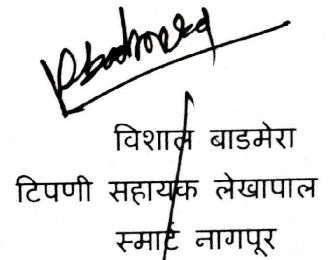 विशाल बाडमेरा
टिपणी सहायक लेखापाल
स्मार्ट नागपूर